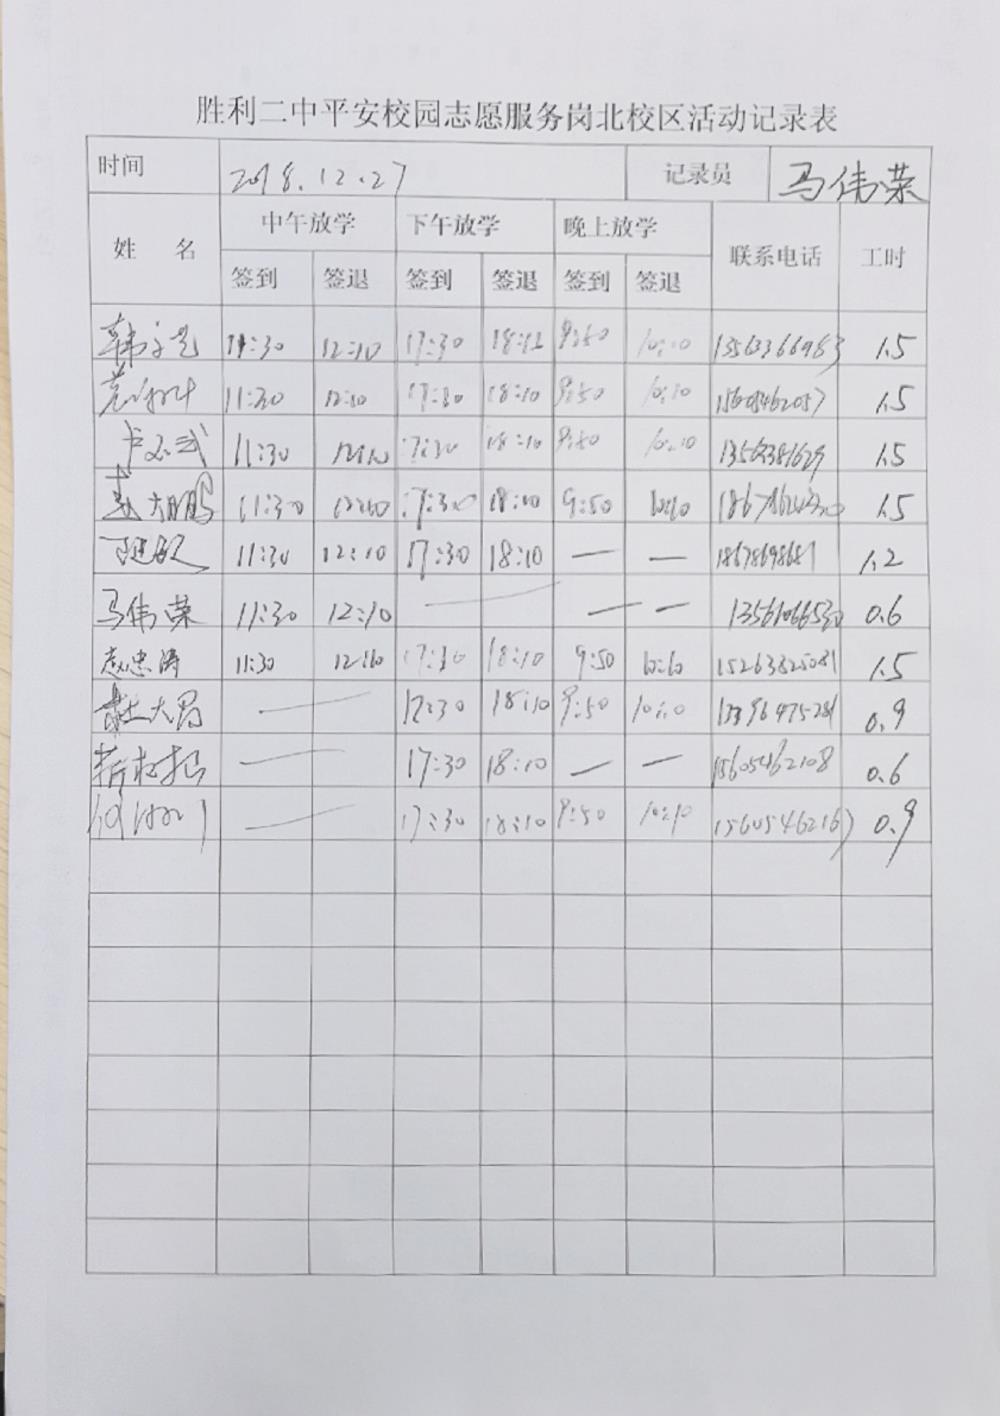 胜利二中平安校园志愿服务岗北校区活动记录表
时间 2018.12.27 记录员 马伟荣
姓 名 中午放学 下午放学 晚上放学 联系电话 工时
签到 签退 签到 签退 签到 签退
11:30 12:10 17:30 18:12 9:50 10:10 13563366983 1.5
11:30 12:10 17:30 18:10 9:50 10:10 15605462057 1.5
11:30 12:10 17:30 18:10 9:50 10:10 13563381629 1.5
大鹏 11:30 12:10 17:30 18:10 9:50 10:10 1.5
11:30 12:10 17:30 18:10 — — 18678698681 1.2
马伟荣 11:30 12:10 — — — 13561066530 0.6
赵忠涛 11:30 12:10 17:30 18:10 9:50 10:10 15263825081 1.5
杜大昌 — 17:30 18:10 9:50 10:10 0.9
— 17:30 18:10 — — 15605462108 0.6
— 17:30 18:10 9:50 10:10 15605462167 0.9